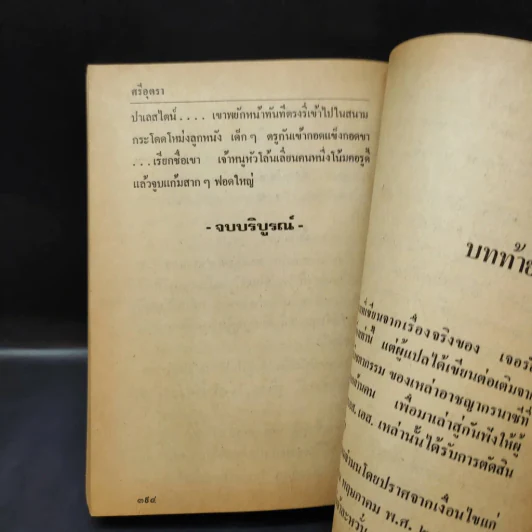 ศรีอุตรา
ปาเลสไตน์ . . . . เขาพยักหน้าทันทีตรงรี่เข้าไปในสนาม
กระโดดโหม่งลูกหนัง เด็ก ๆ ตรูกันเข้ากอดแข้งกอดขา
. . . เรียกชื่อเขา เจ้าหนูหัวโล้นเลี่ยนคนหนึ่งโน้มคอรูดี้
แล้วจูบแก้มสาก ๆ ฟอดใหญ่
- จบบริบูรณ์ -
๓๙๔
บทท้าย
เขียนจากเรื่องจริงของ
แต่ผู้แปลได้เขียนต่อเติมจาก
ของเหล่าอาชญากรนาซีที่
เพื่อมาเล่าสู่กันฟังให้ผู้
เอส. เหล่านั้นได้รับการตัดสิน
โดยปราศจากเงื่อนไขแก่
พฤษภาคม พ.ศ.